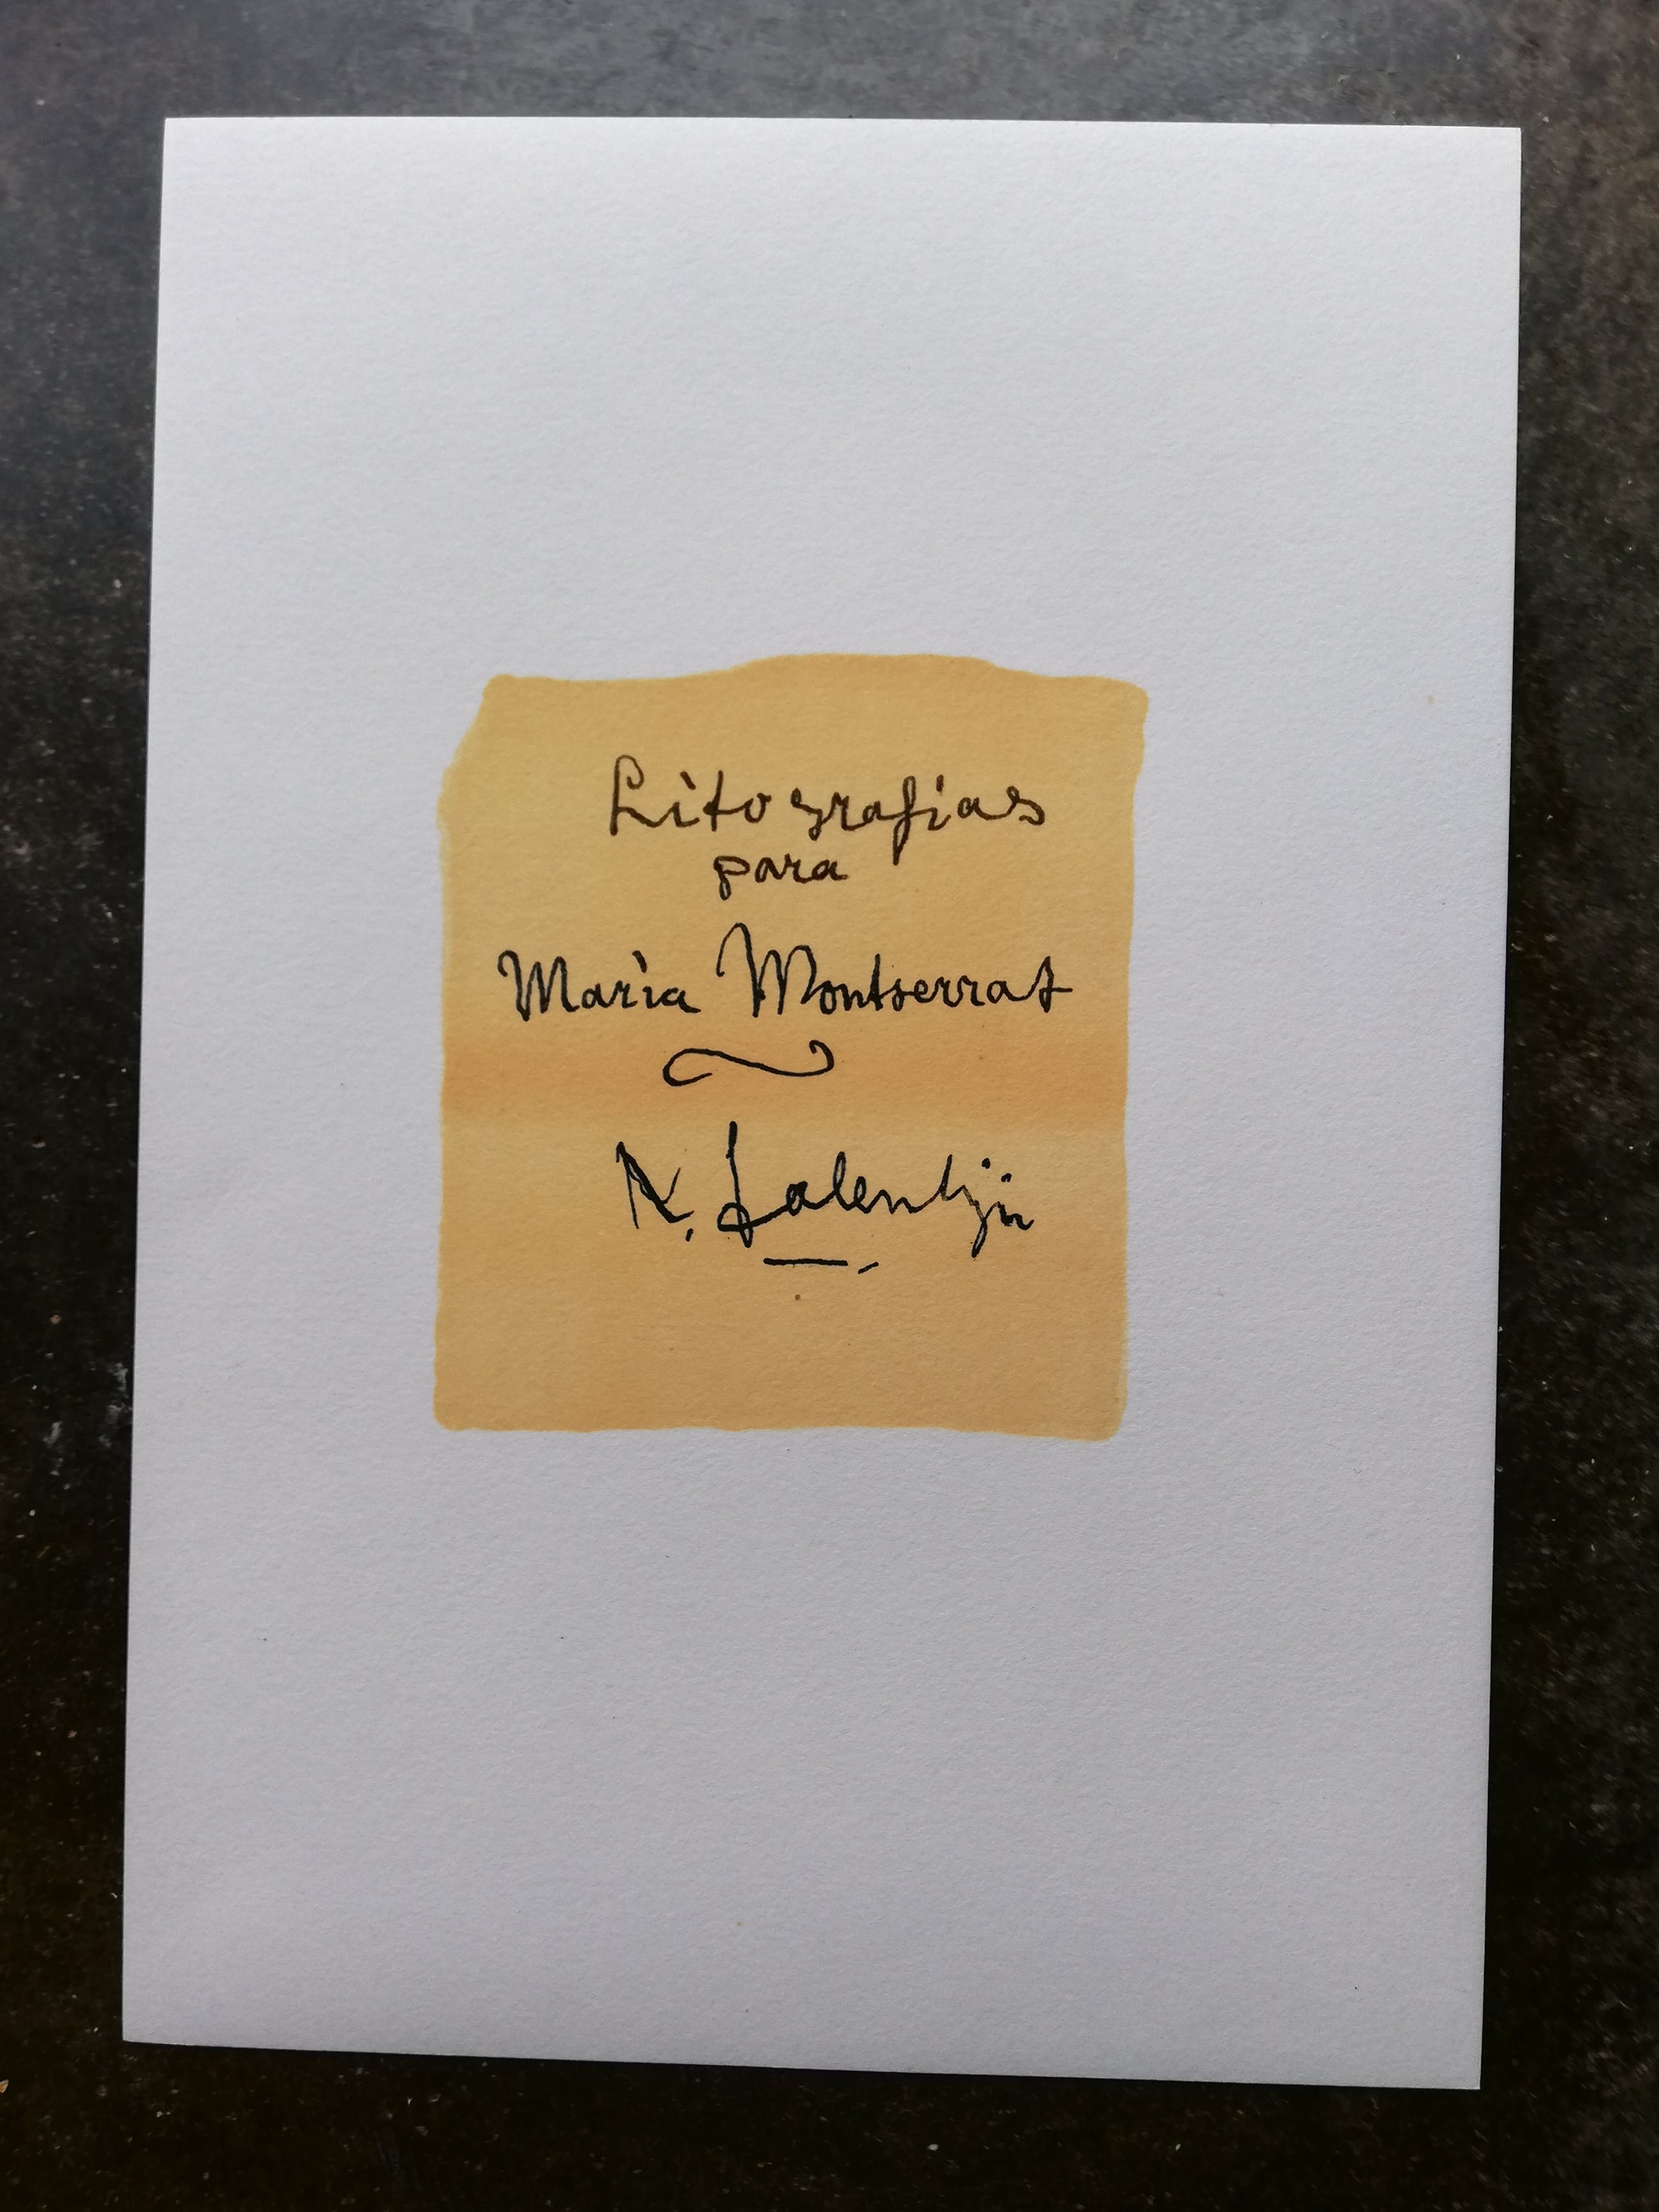 Litografias
para
Maria Montserrat